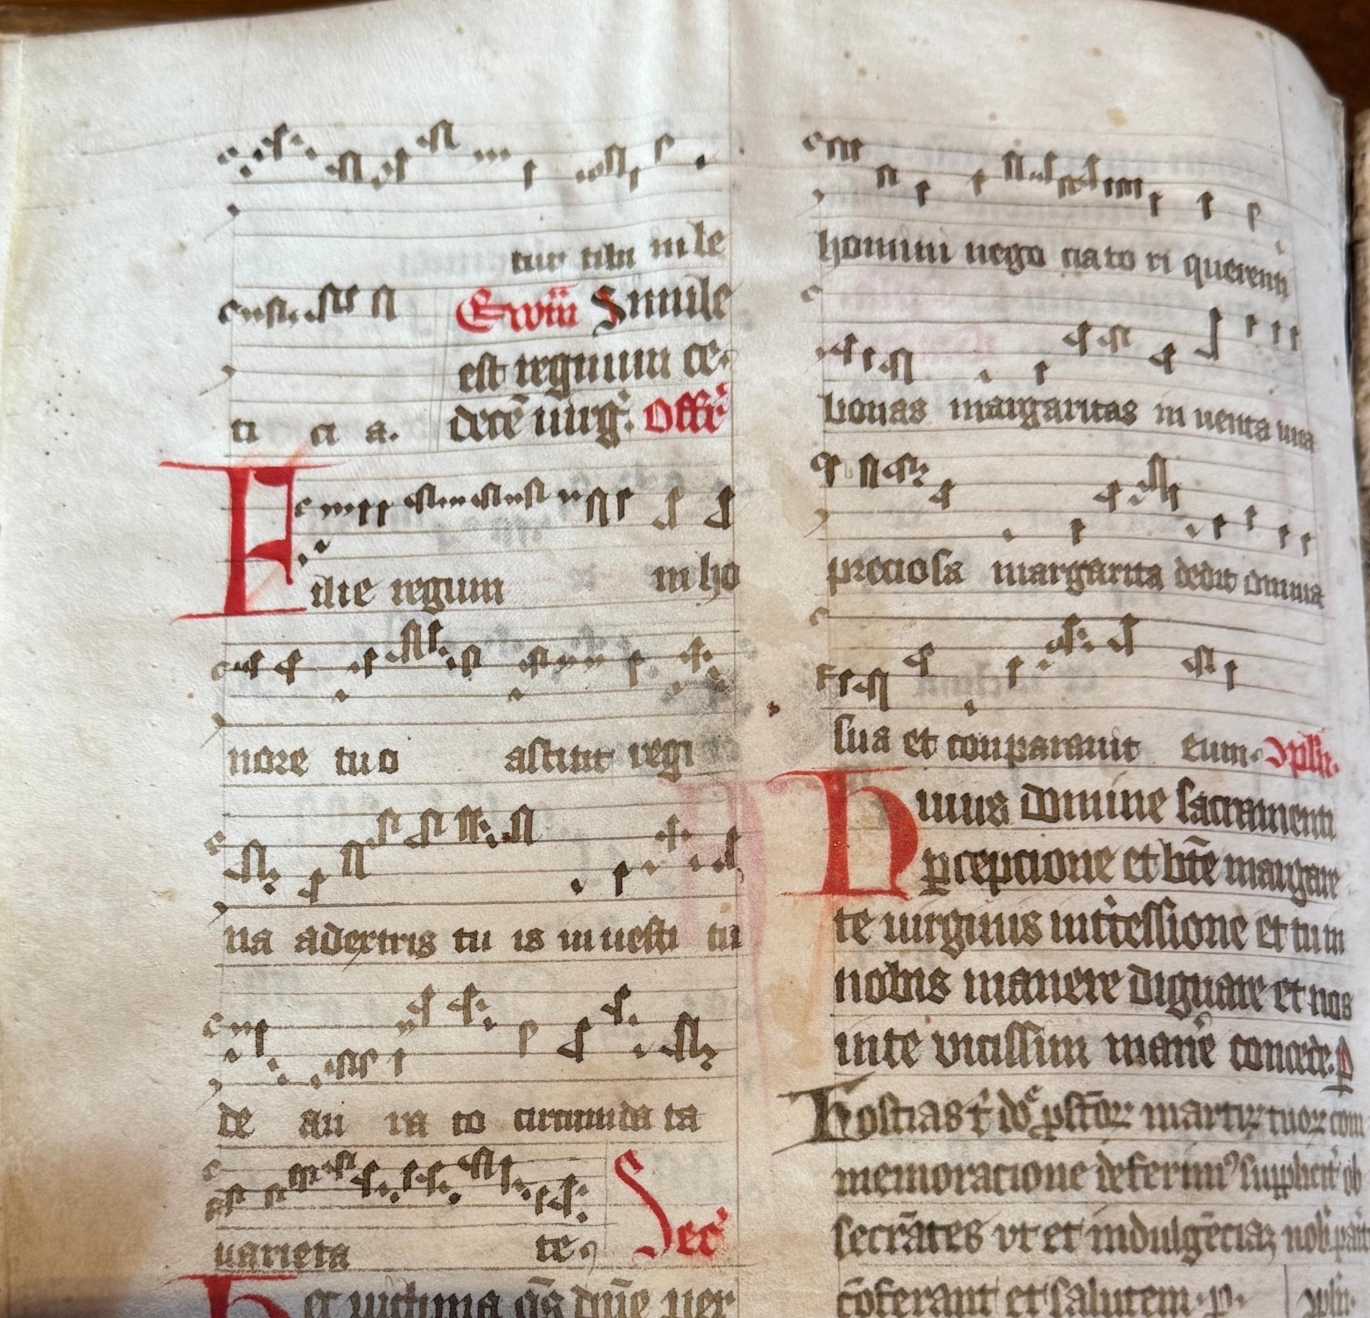 tur tibi in le
Ewm̄ Simile
est regnum ce
ti ci a. decē uirg̃. Offr̃
Filie regum in ho
nore tuo astitit regi
na adextris tu is in uesti tu
de au ra to circumda ta
uarieta te, Secr̃
Hec uictima q̄s dn̄e per
homini nego ciato ri querenti
bonas margaritas in uenta una
preciosa margarita dedit omnia
sua et conparauit eum.
Huius domine sacramenti
ꝑcepcione et bt̄e margare
te uirginis int̃cessione et tu in
nobis manere dignare et nos
in te vicissim manẽ concede. p
Hostias t̃
memoracione deferimꝰ supplicit̃ ob
secrãtes vt et indulgẽciaꝫ nob̃
cõferant et salutem. p.